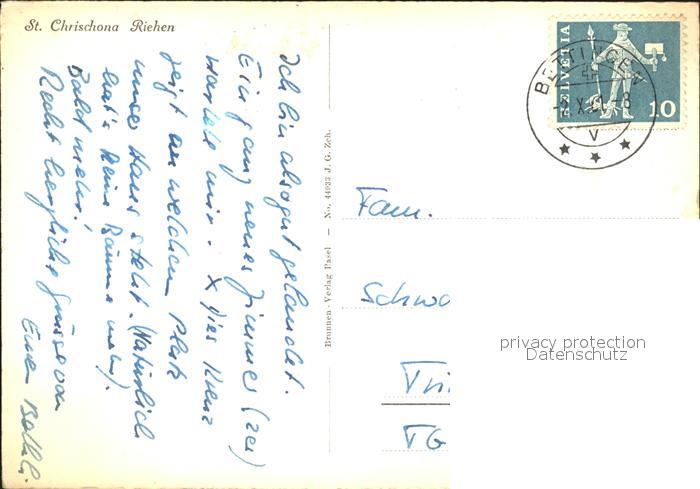 St. Chrischona Riehen
Ich bin also gut gelandet.
Ein ganz neues Zimmer (2er)
wartete mir. X Dies Kreuz
zeigt an welchem Platz
unser Haus steht. (Natürlich
hat's keine Bäume mehr).
Bald mehr!
Recht herzliche Grüsse von
Eurem
Brunnen-Verlag Basel — No. 44933 J. G. Zch.
HELVETIA
10
BETTINGEN
V
Fam.
Schwa
TG
privacy protection
Datenschutz